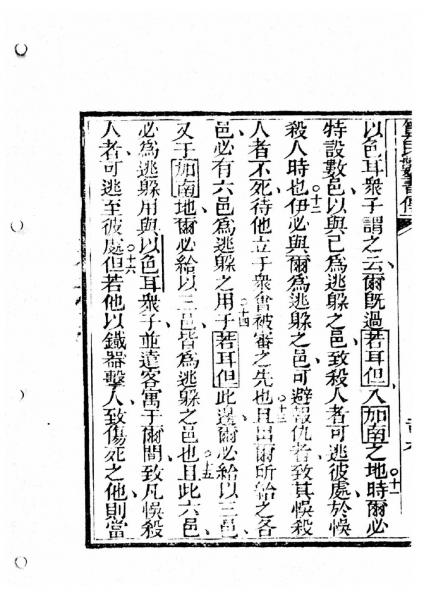 以色耳眾子謂之云爾既過若耳但入加南之地十一時爾必
特設數邑以與己為逃躲之邑致殺人者可逃彼處於悞
殺人時也十二伊必與爾為逃躲之邑可避報仇者致其悞殺
人者不死待他立于眾會被審之先也十三且爾所給之各
邑必有六邑為逃躲之用十四于若耳但此邊爾必給以三邑
又于加南地爾必給以三邑皆為逃躲之邑也十五且此六邑
必為逃躲用與以色耳眾子並遠客寓于爾間致凡悞殺
人者可逃至彼處十六但若他以鐵器擊人致傷死之他則當